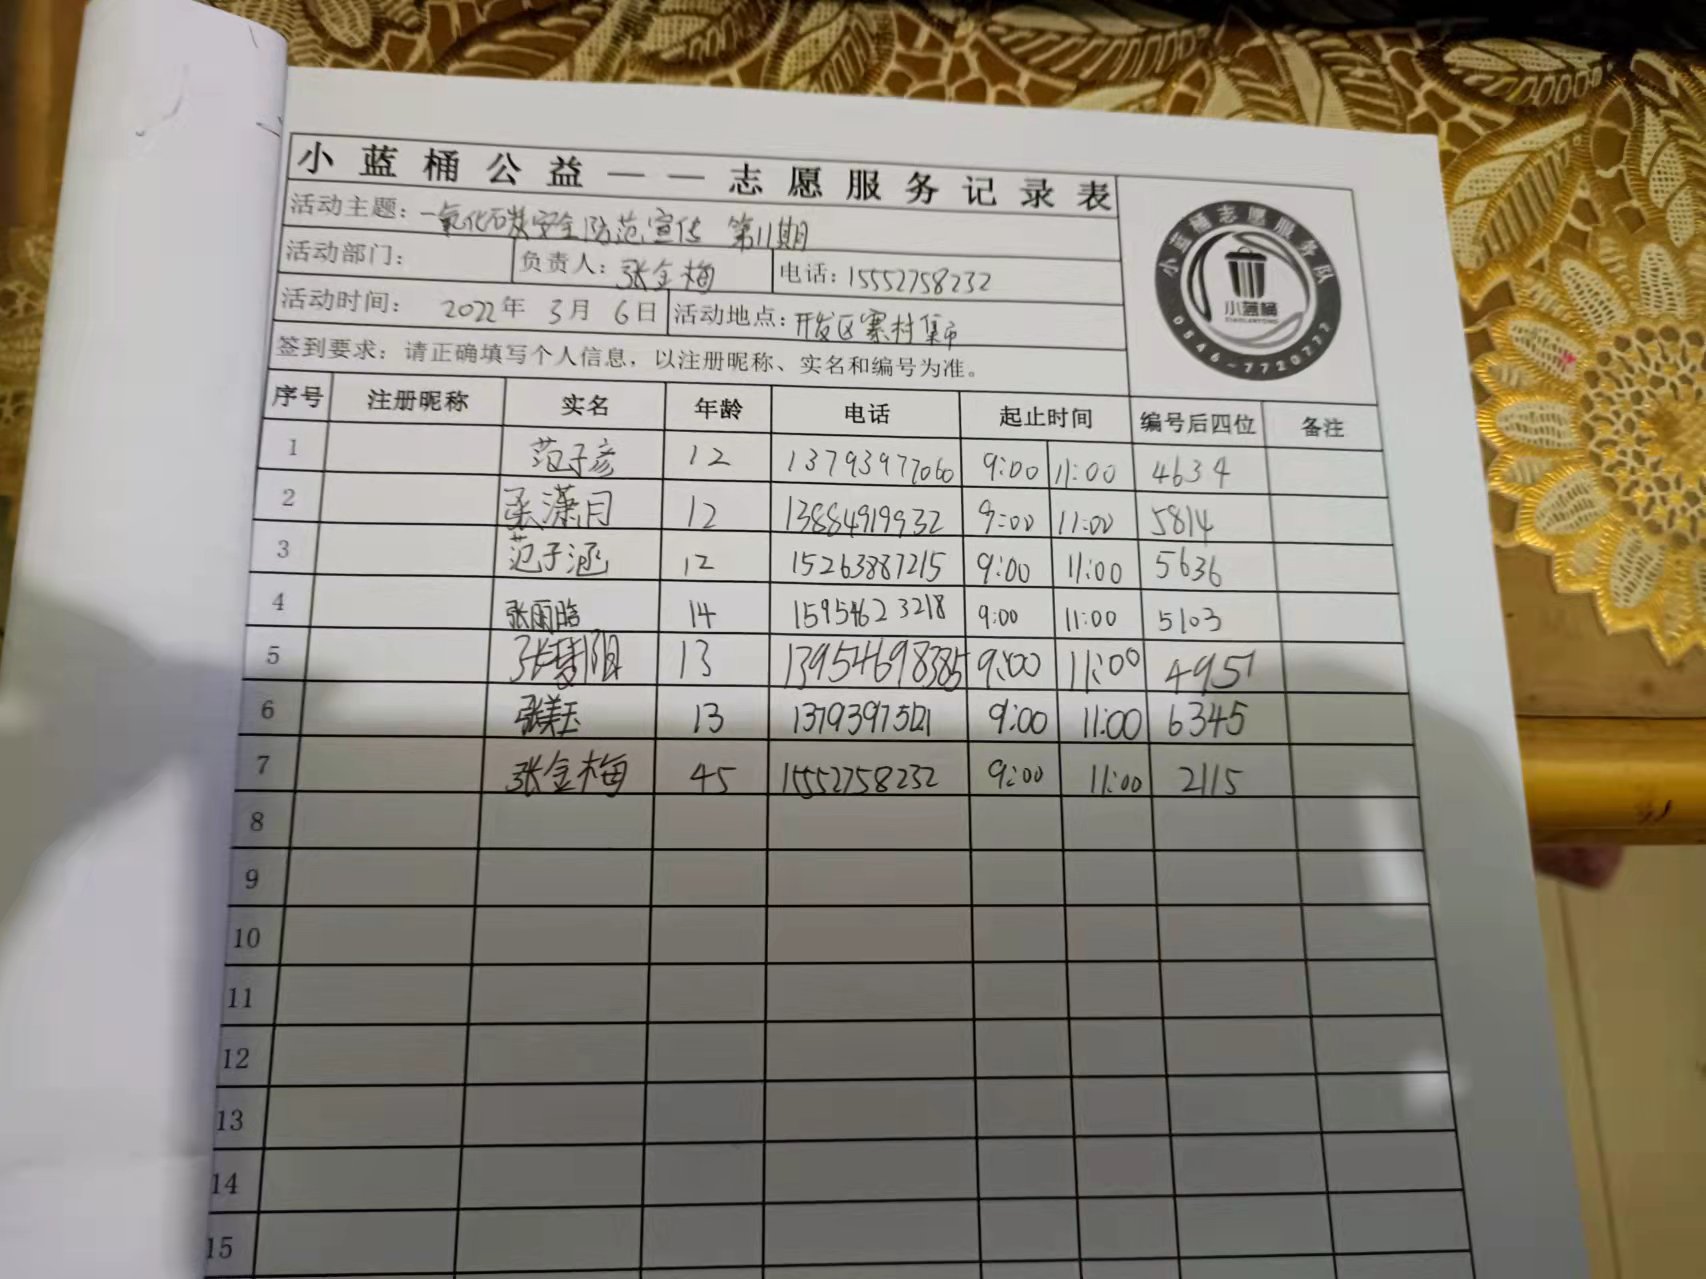 小蓝桶公益——志愿服务记录表
活动主题：一氧化碳安全防范宣传 第11期
活动部门： 负责人：张金梅 电话：15552758232
活动时间： 2022年 3月 6日 活动地点：开发区寨村集市
签到要求：请正确填写个人信息，以注册昵称、实名和编号为准。
小蓝桶志愿服务队
小蓝桶
XIAOLANTONG
0546-7720777
序号 注册昵称 实名 年龄 电话 起止时间 编号后四位 备注
1 范子彦 12 13793977060 9:00 11:00 4634
2 潇月 12 13884919932 9:00 11:00 5814
3 范子涵 12 15263887215 9:00 11:00 5636
4 张雨晗 14 15954623218 9:00 11:00 5103
5 张 阳 13 13954698385 9:00 11:00 4951
6 张美玉 13 13793975121 9:00 11:00 6345
7 张金梅 45 15552758232 9:00 11:00 2115
8
9
10
11
12
13
14
15